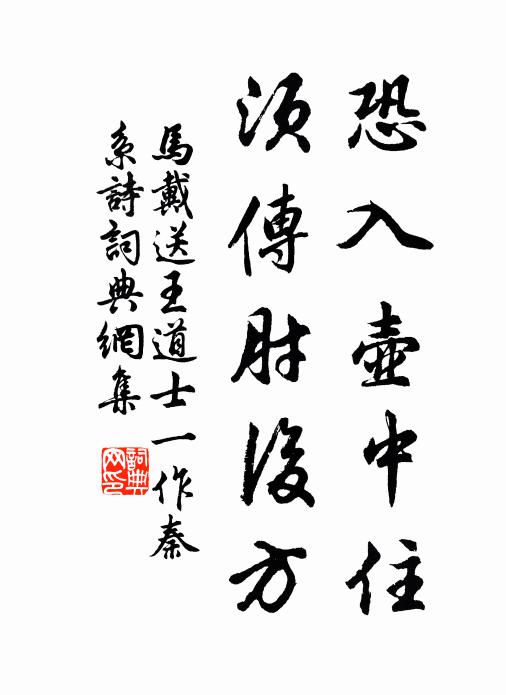 恐入壺中住
須傳肘後方
馬戴送王道士一作秦
系詩詞典網集
詞典
网印